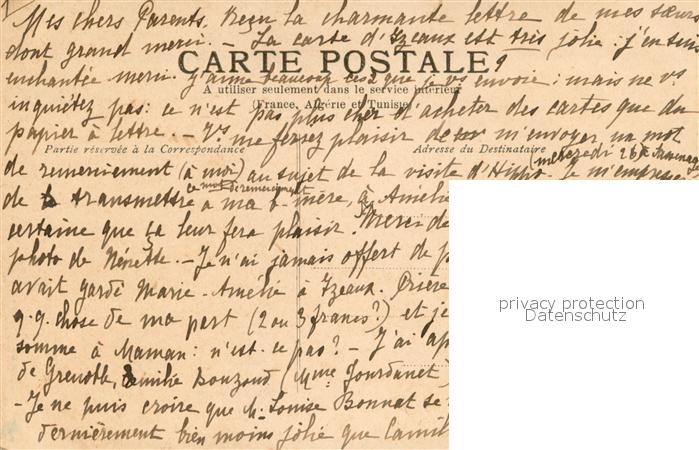 Mes chers Parents. Reçu la charmante lettre de mes sœurs
dont grand merci. – La carte d'Izeaux est très jolie : j'en suis
CARTE POSTALE
enchantée merci. J'aime beaucoup celles que je vs envoie : mais ne vs
A utiliser seulement dans le service intérieur
inquiétez pas : ce n'est pas plus cher d'acheter des cartes que du
(France, Algérie et Tunisie)
papier à lettre. – Vs me ferez plaisir de m'envoyer un mot
Partie réservée à la Correspondance
Adresse du Destinataire
(mercredi 26 à
de remerciement (à moi) au sujet de la visite d'Hippo. Je m'empresse
ce mot de remerciement
de transmettre à ma b-mère, à Amélie
certaine que ça leur fera plaisir. Merci de
photo de Nénette. – Je n'ai jamais offert de
avait gardé Marie-Amélie à Izeaux. Prière
q.q. chose de ma part (2 ou 3 francs?) et je
somme à Maman : n'est-ce pas? – J'ai
de Grenoble, Emilie Douzoud (Mme Jourdanet)
– Je ne puis croire que M. Louise Bonnat se
dernièrement bien moins jolie que
privacy protection
Datenschutz